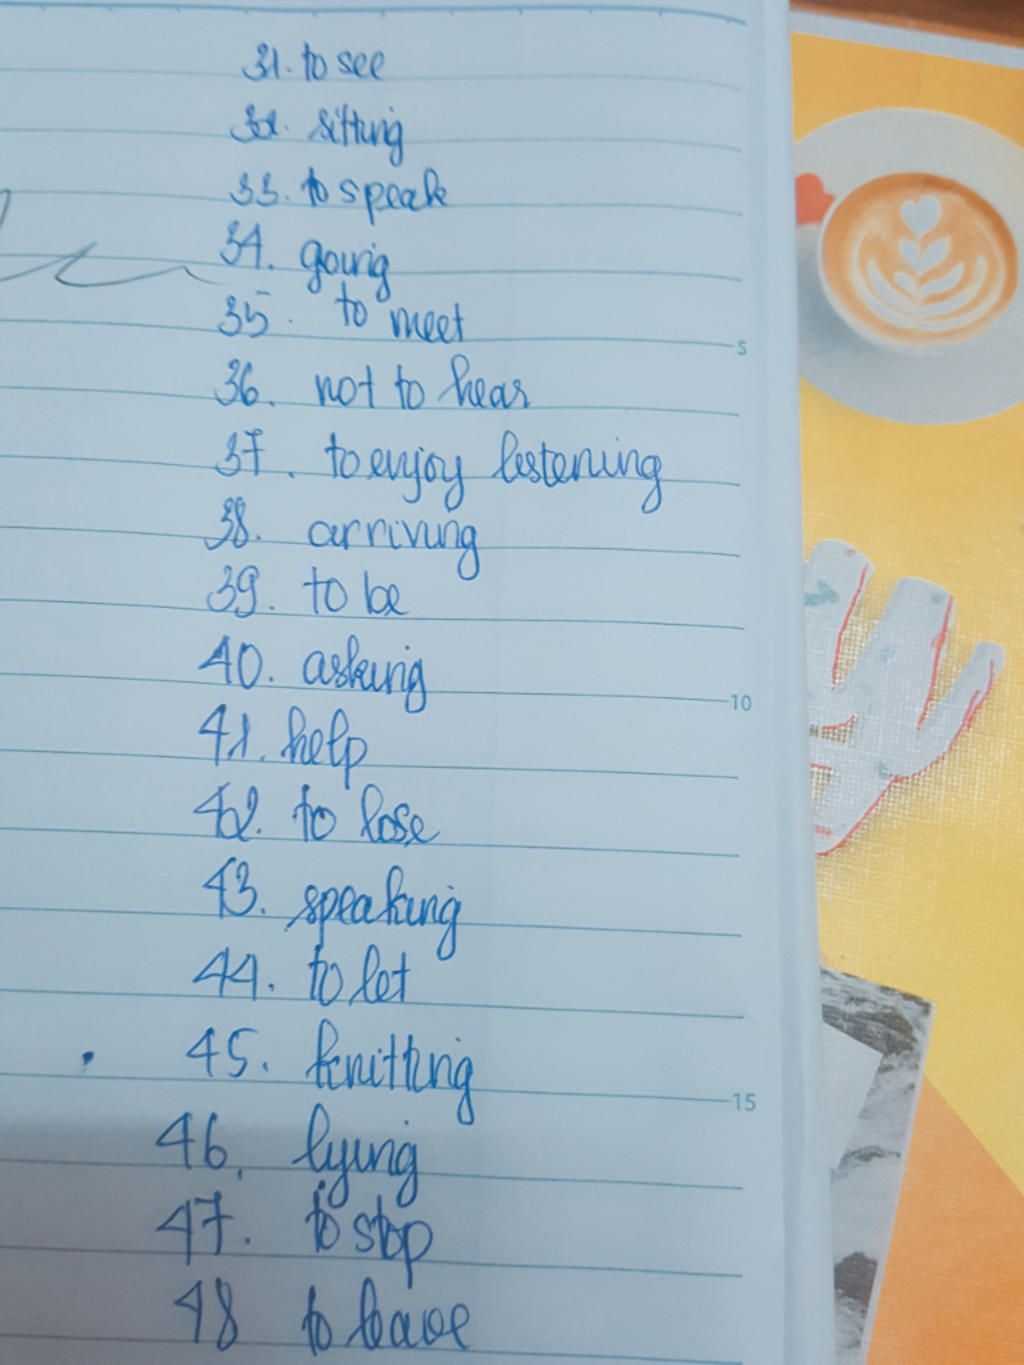 31. to see
32. sitting
33. to speak
34. going
35. to meet
5
36. not to hear
37. to enjoy listening
38. arriving
39. to be
40. asking
10
41. help
42. to lose
43. speaking
44. to let
45. knitting
15
46. lying
47. to stop
48 to leave